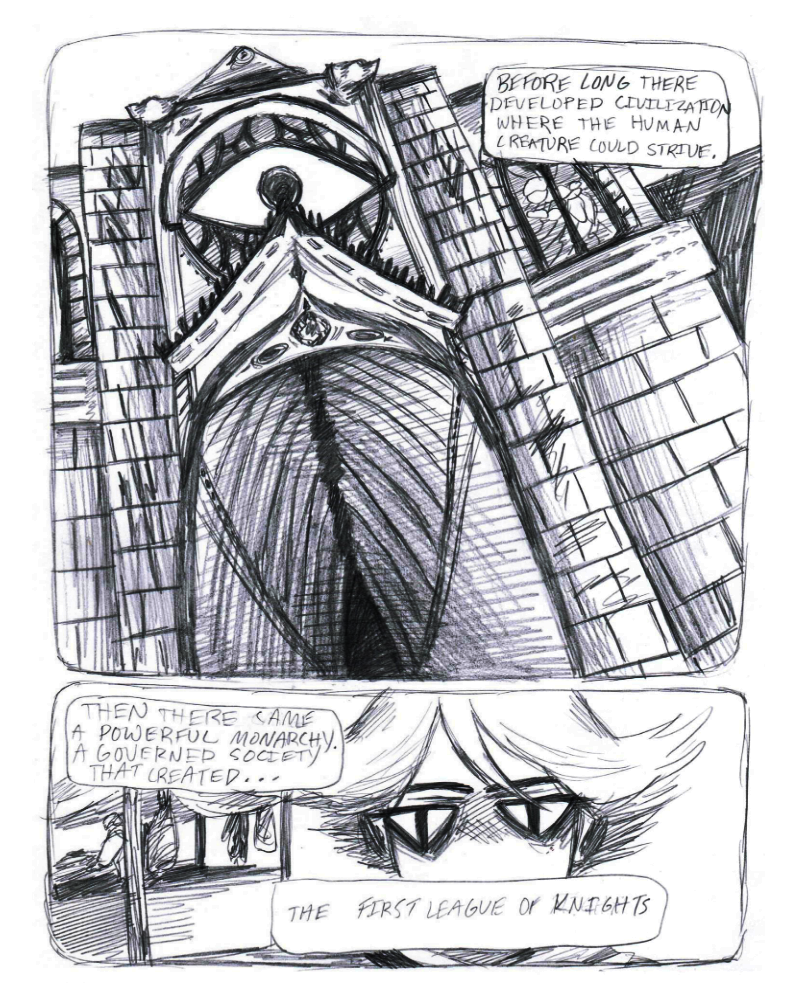 BEFORE LONG THERE
DEVELOPED CIVILIZATION
WHERE THE HUMAN
CREATURE COULD STRIVE.
THEN THERE CAME
A POWERFUL MONARCHY.
A GOVERNED SOCIETY
THAT CREATED...
THE FIRST LEAGUE OF KNIGHTS